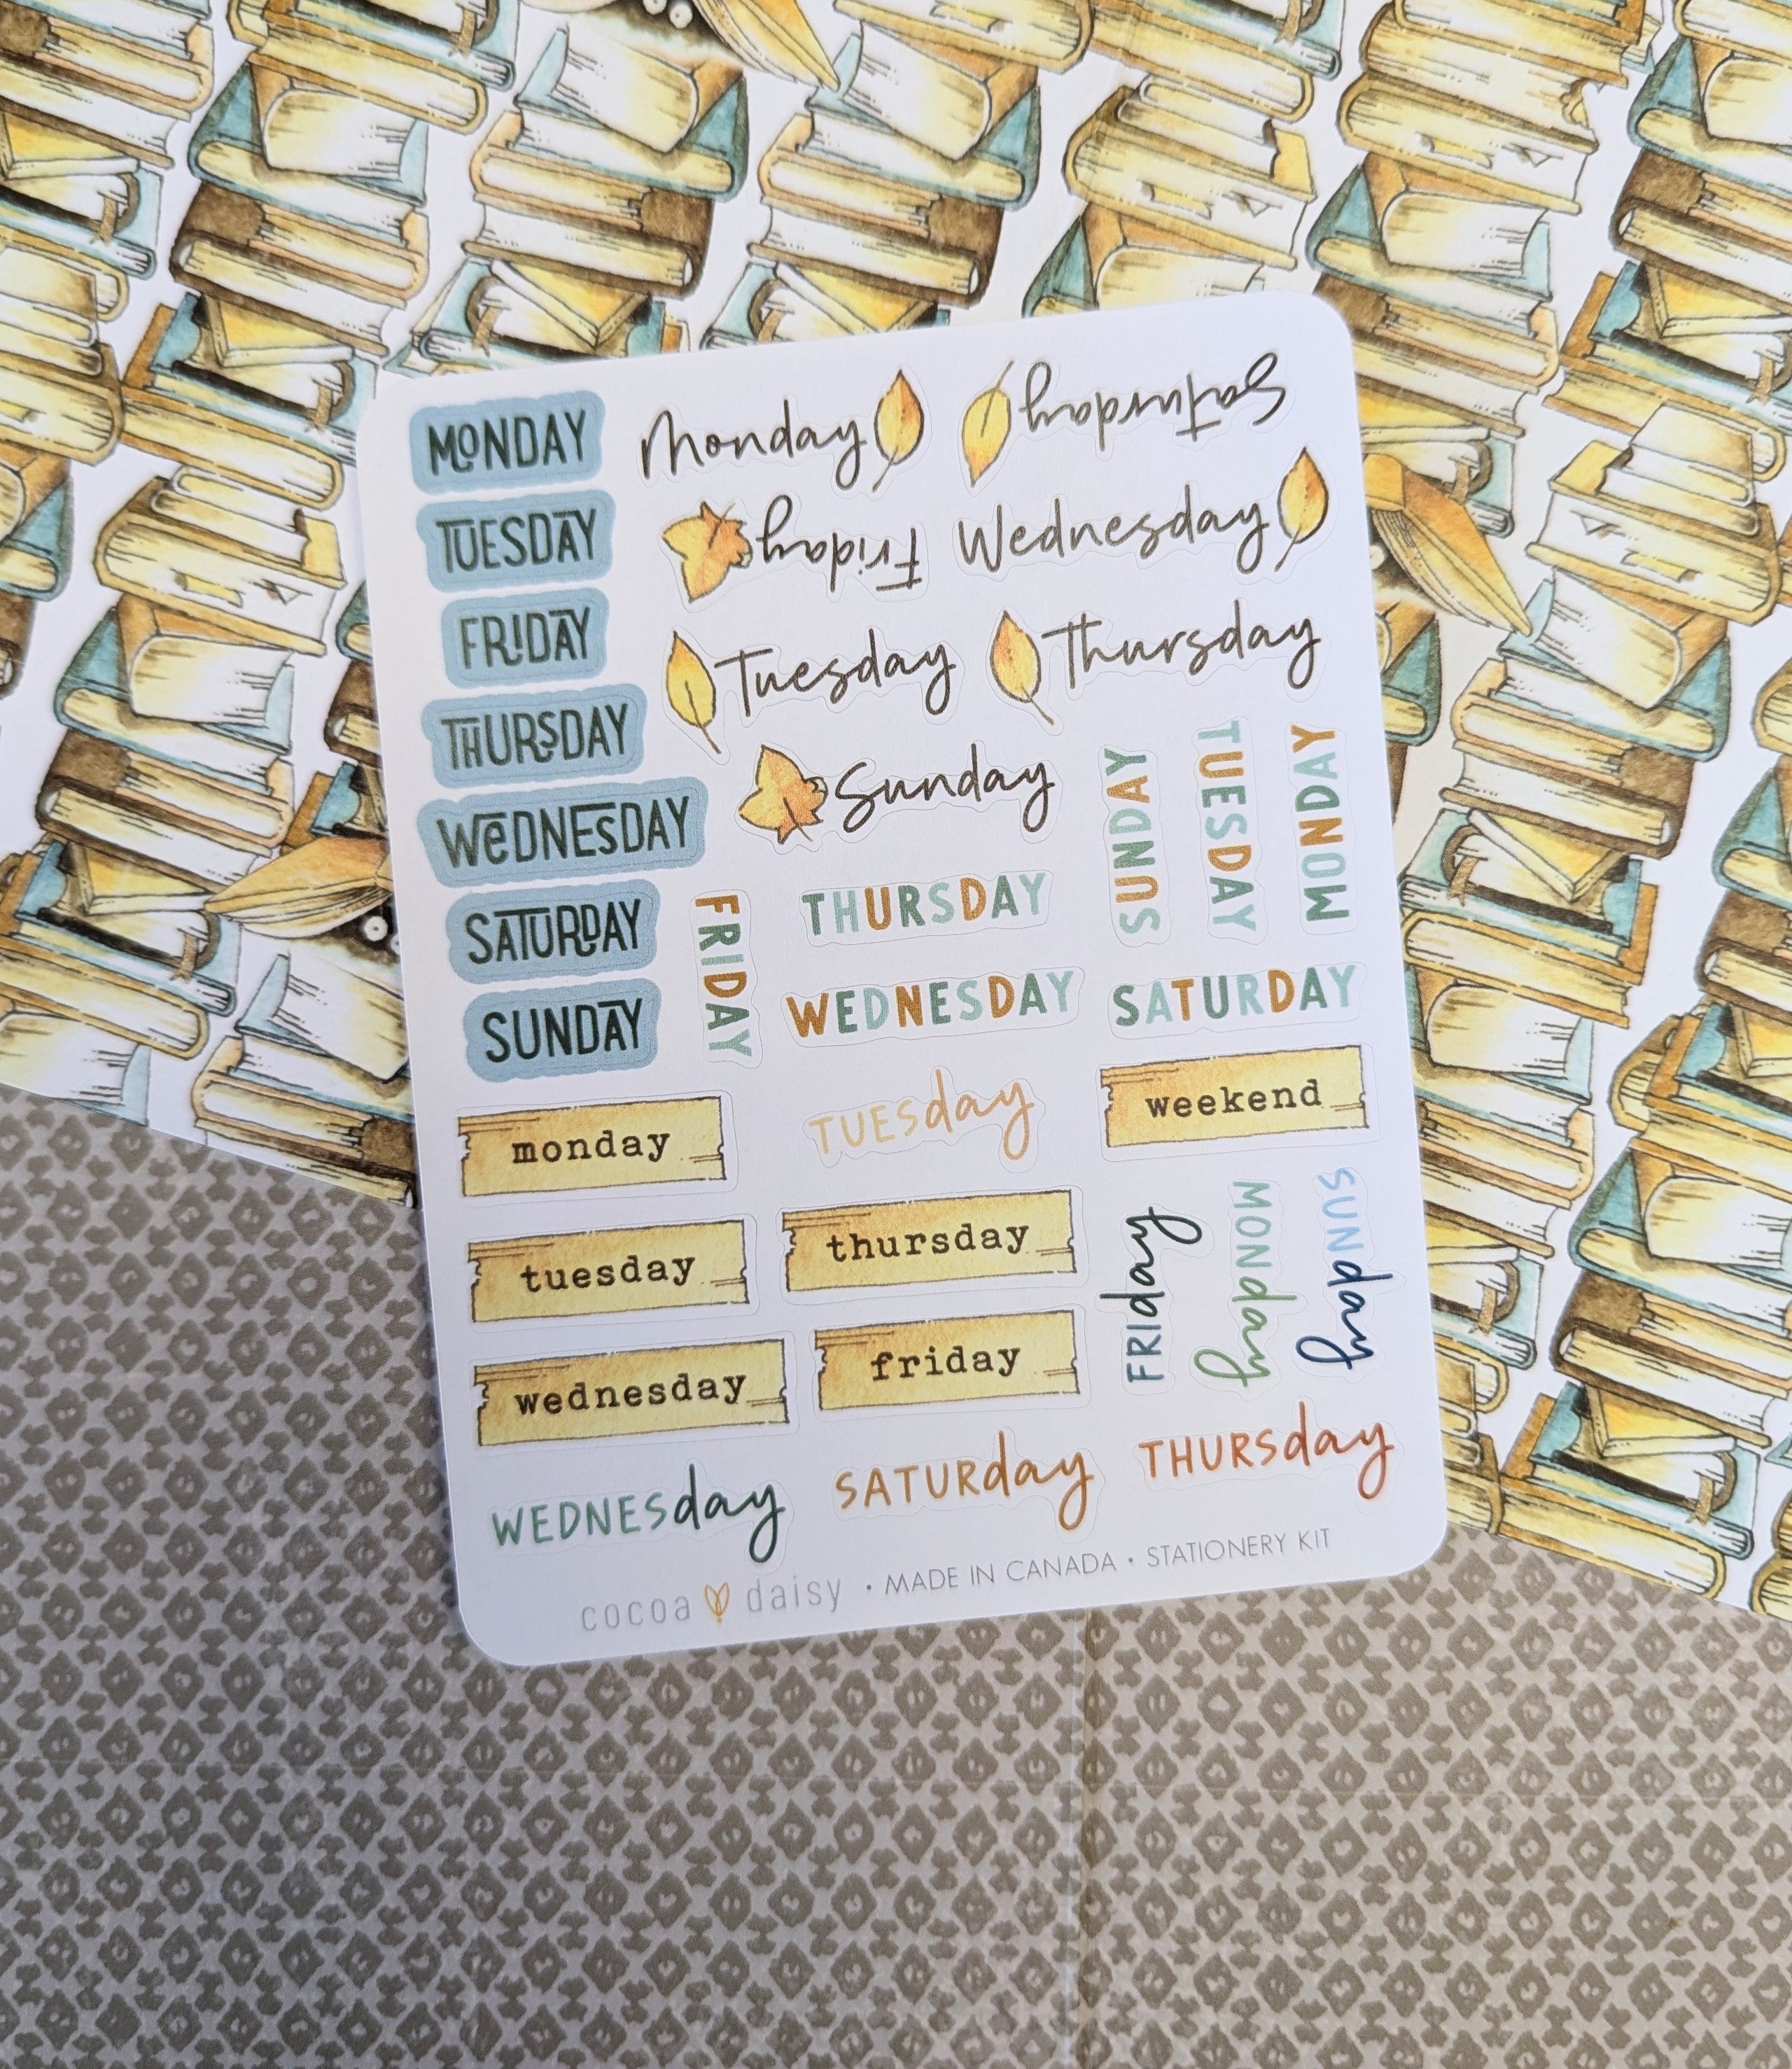 MONDAY
Monday
Saturday
TUESDAY
Friday
Wednesday
FRIDAY
Tuesday
Thursday
THURSDAY
Sunday
SUNDAY
TUESDAY
MONDAY
WeDNEsDAY
SATURDAY
FRIDAY
THURSDAY
SUNDAY
WEDNESDAY
SATURDAY
monday
TUESday
weekend
tuesday
thursday
FRIday
MONday
SUNday
wednesday
friday
WEDNESday
SATURday
THURSday
cocoa daisy • MADE IN CANADA • STATIONERY KIT